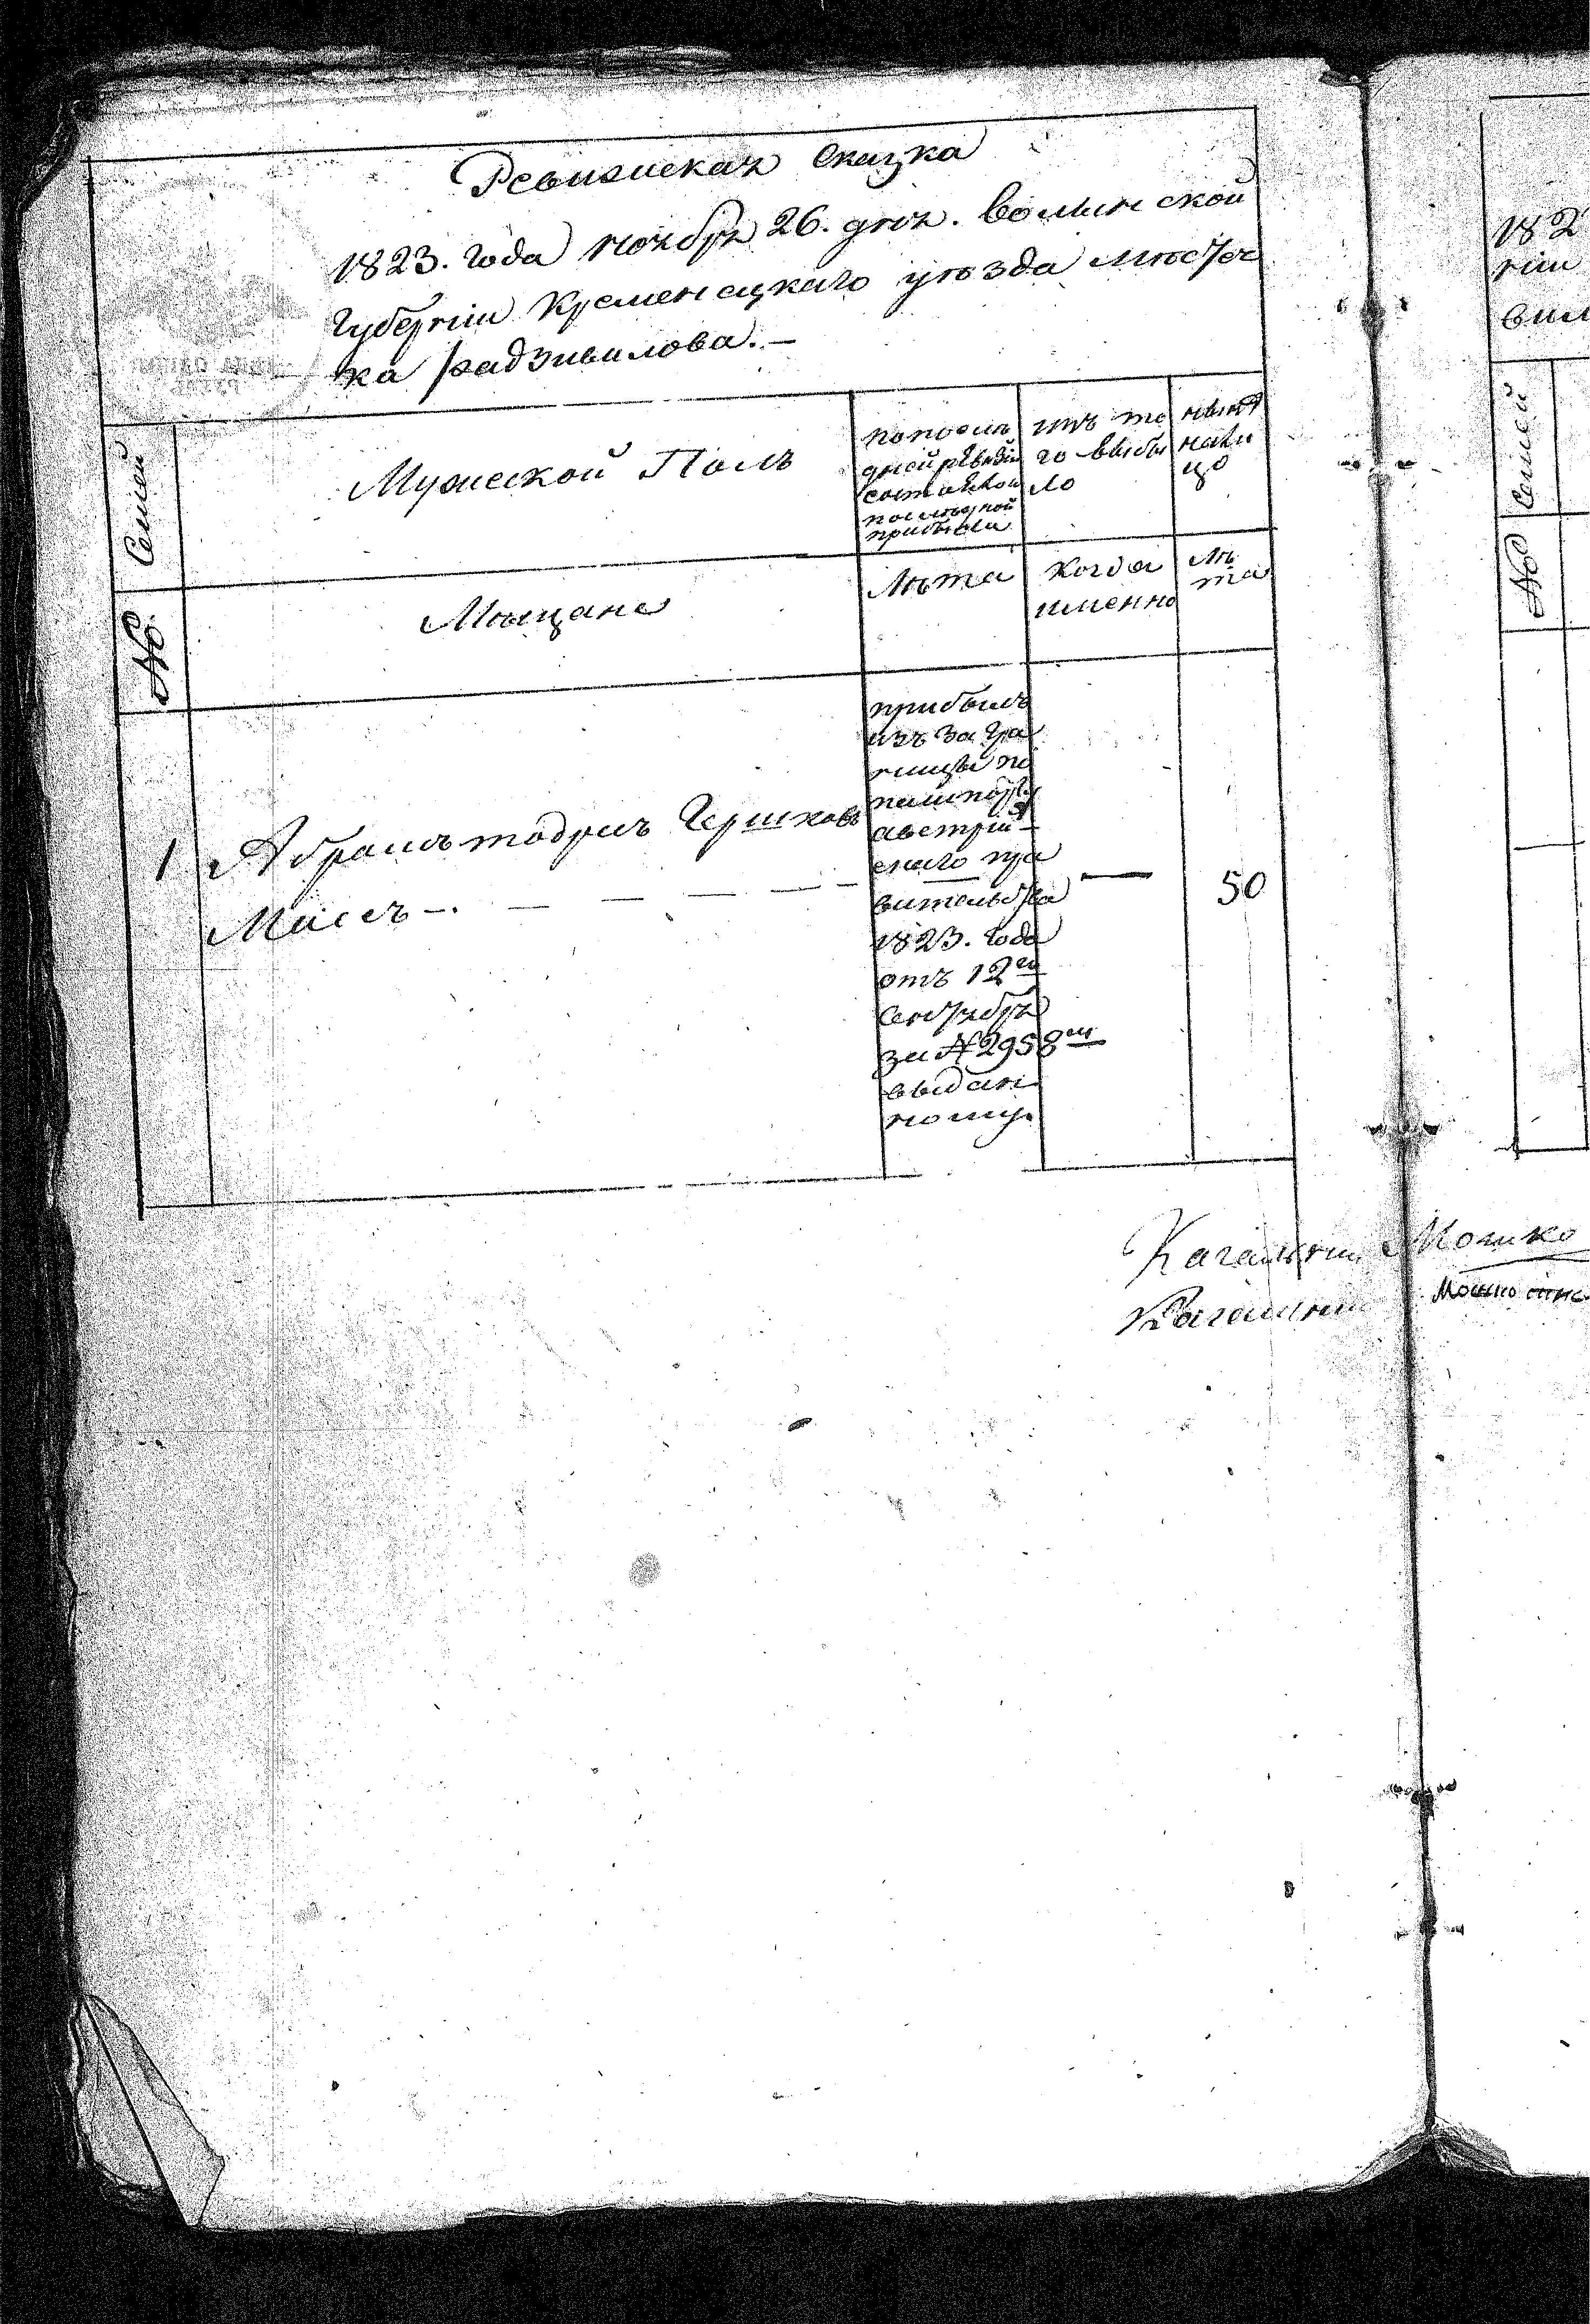 Ревизская Сказка
1823. Года ноября 26. дня. Волынской
Губерніи Кременецкаго уѣзда мѣстеч
ка Радзивилова.-
№ Семей
Мужеской Полъ
по после
дней ревизіи
состояло и
после оной
прибыли
изъ то
го выбы
ло
нынѣ
нали
цо
Мѣщане
Лѣта
Когда
именно
Лѣ
та
1
Абрамъ модрыъ Гершковъ
Маисъ -.
прибылъ
изъ за гра
ницы по
пашпорту
австрій-
скаго пра
вительства
1823. Года
отъ 12го
Сентября
за № 2958м
выдан
ному.
—
50
Кагальны Мошко
Кагальны Мошко
182
ніи
вил
№ Семей